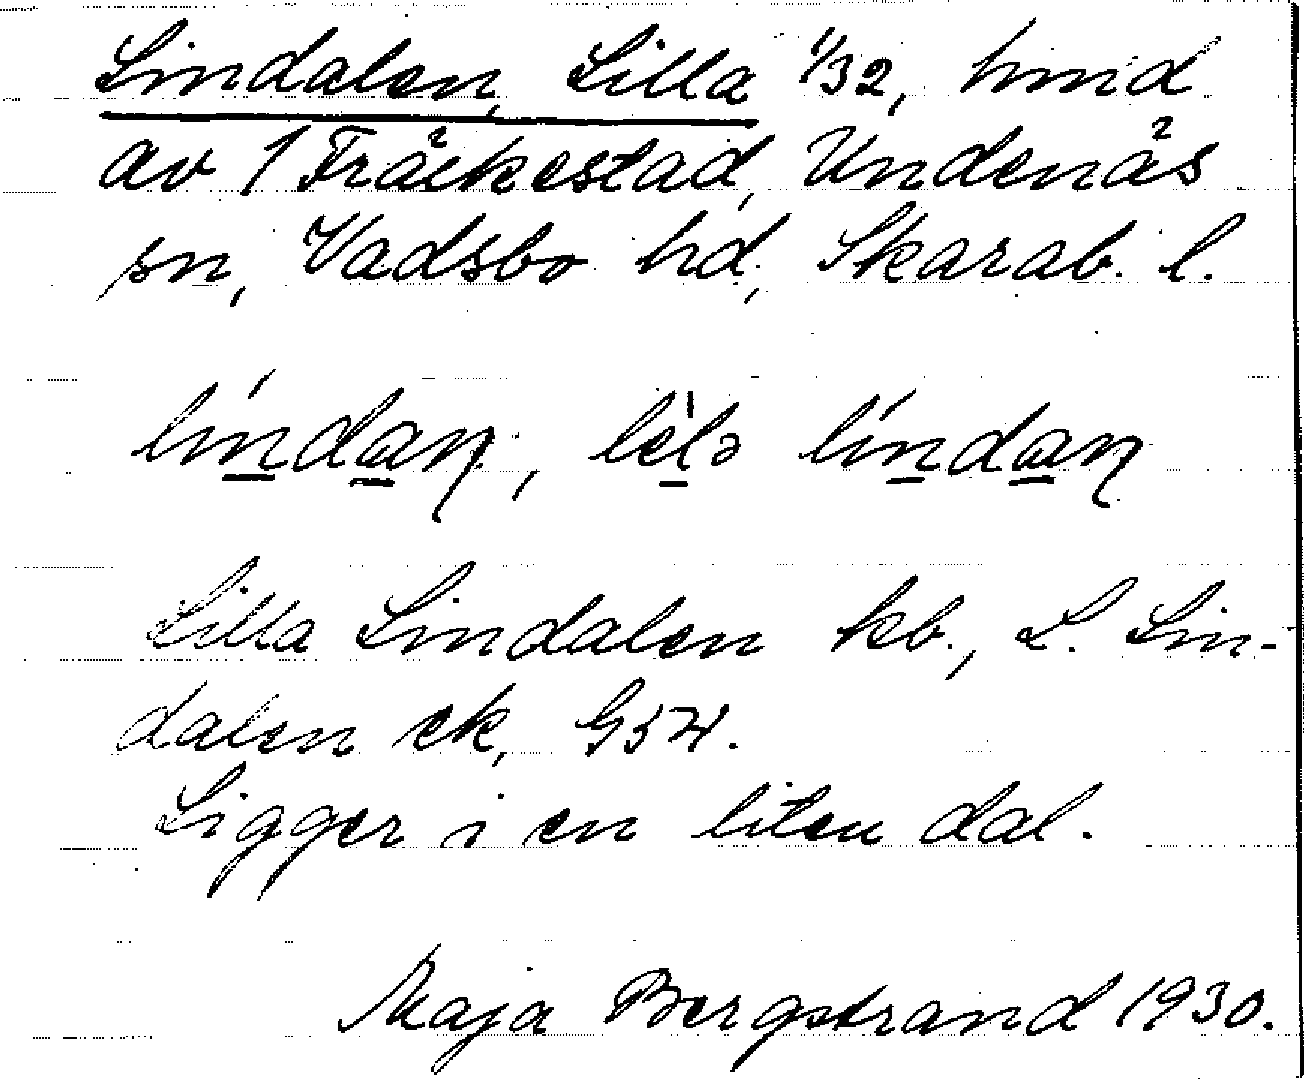 Lindalen, Lilla 1/32, hmd
av 1 Fräckestad, Undenäs
sn, Vadsbo hd, Skarab. l.
Lilla Lindalen kb., L. Lin-
dalen ek, G34.
Ligger i en liten dal.
Maja Bergstrand 1930.